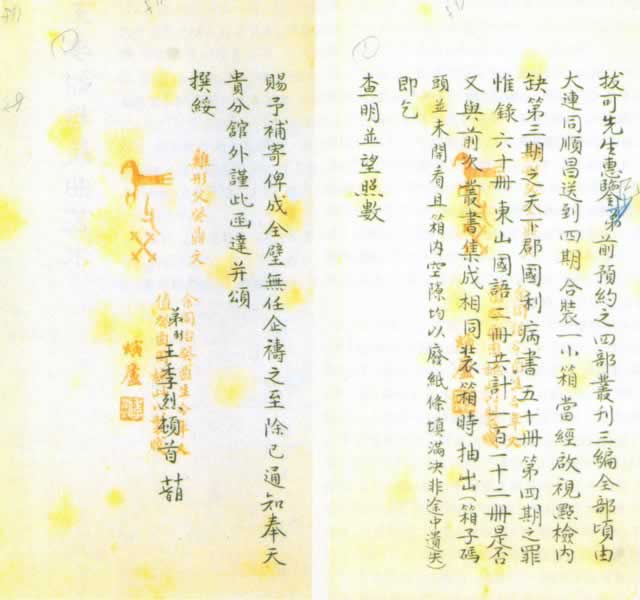 拔可先生惠鑒弟前預約之四部叢刊三編全部頃由
大連同順昌送到四期合裝一小箱當經啟視點檢內
缺第三期之天下郡國利病書五十冊第四期之罪
惟錄六十冊東山國語二冊共計一百一十二冊是否
又與前次叢書集成相同裝箱時抽出(箱子碼
頭並未開看且箱內空隙均以廢紙條填滿決非途中遺失)
即乞
查明並望照數
賜予補寄俾成全璧無任企禱之至除已通知奉天
貴分館外謹此函達并頌
撰綏
雞形父癸鼎文
余同治癸酉生今年又
值癸酉
弟制王季烈頓首
螾廬